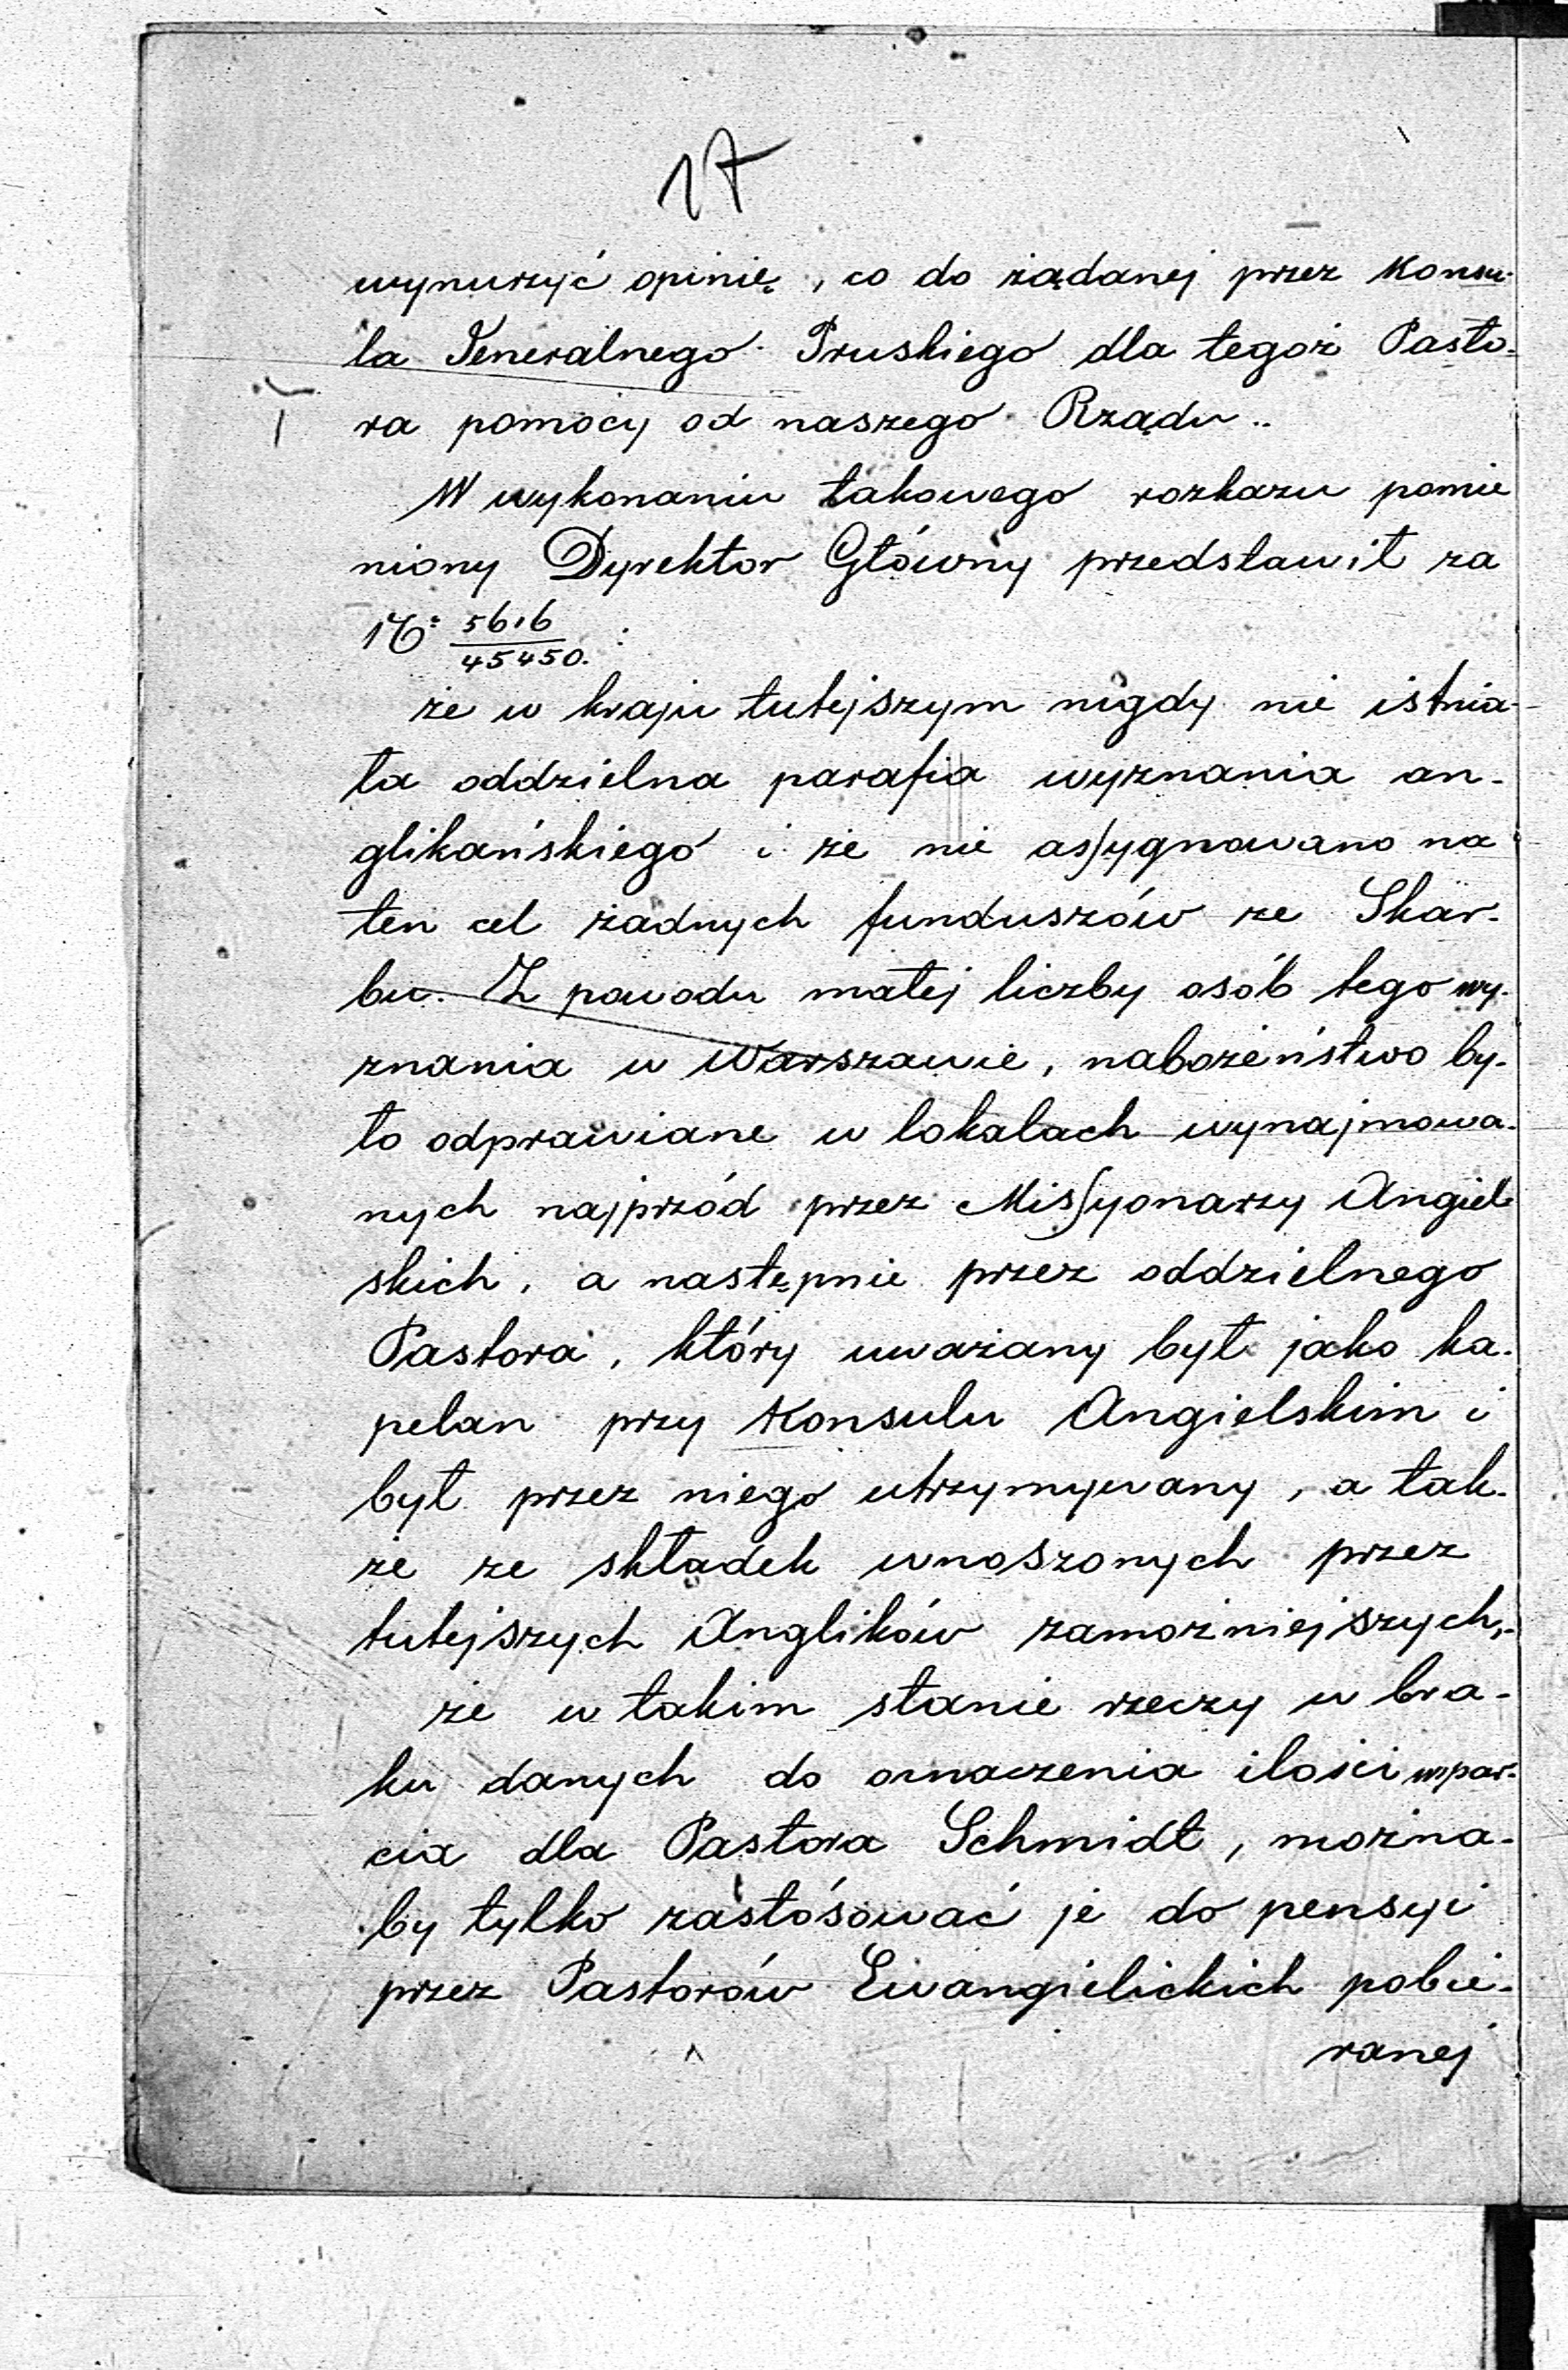 17
wynurzyć opinię, co do żądanej przez Konsu-
la Jeneralnego Pruskiego dla tegoż Pasto-
ra pomocy od naszego Rządu..
W wykonaniu takowego rozkazu pomie
niony Dyrektor Główny przedstawił za
№ 5616/45450. :
że w kraju tutejszym nigdy nie istnia-
ła oddzielna parafia wyznania an-
glikańskiego i że nie assygnowano na
ten cel żadnych funduszów ze Skar-
bu. Z powodu małej liczby osób tego wy-
znania w Warszawie, nabożeństwo by-
ło odprawiane w lokalach wynajmowa-
nych najprzód przez Missyonarzy Angiel
skich, a następnie przez oddzielnego
Pastora, który uważany był jako ka-
pelan przy Konsulu Angielskim i
był przez niego utrzymywany, a tak-
że ze składek wnoszonych przez
tutejszych Anglików zamożniejszych,-
że w takim stanie rzeczy w bra-
ku danych do oznaczenia ilości wpar-
cia dla Pastora Schmidt, można-
by tylko zastósować je do pensyi
przez Pastorów Ewangielickich pobie-
ranej